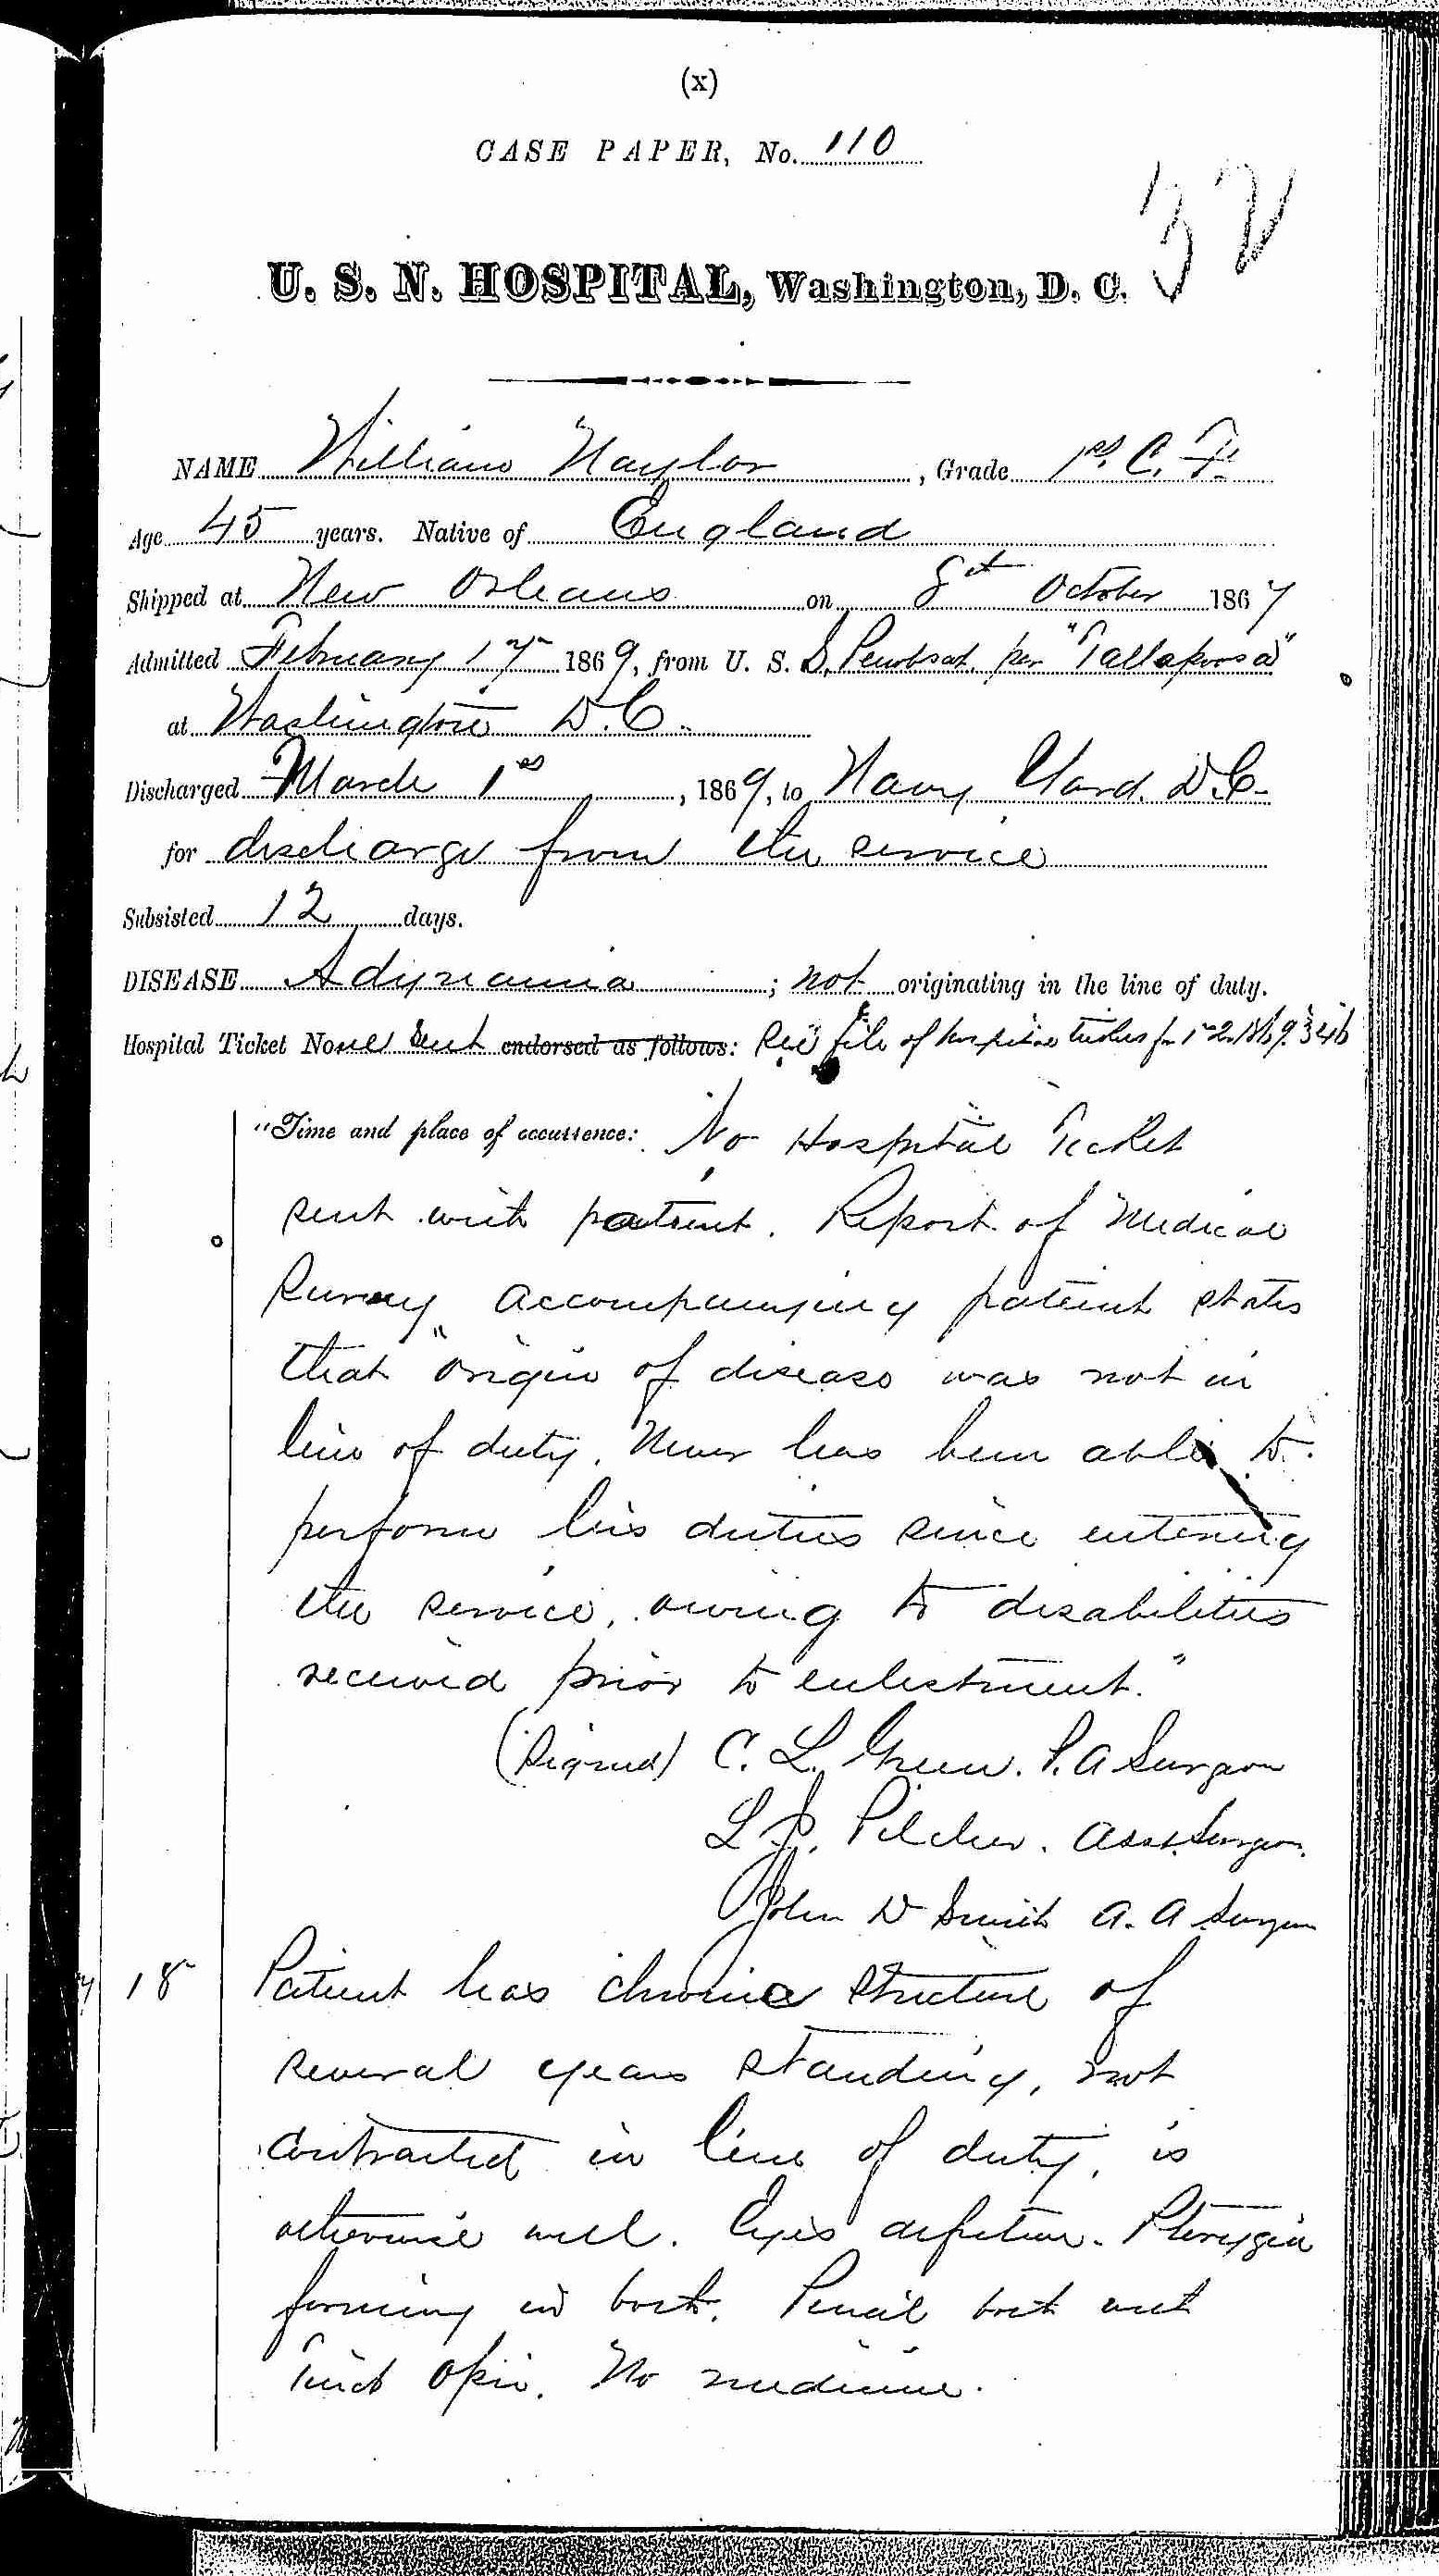 (x)
CASE PAPER, No. 110
32
U. S. N. HOSPITAL, Washington, D. C.
NAME William Naylor, Grade 1st C. F.
Age 45 years. Native of England
Shipped at New Orleans on 8th October 1867
Admitted February 17th 1869, from U. S. S. Penobscot per "Tallapoosa"
at Washington D. C.
Discharged March 1st, 1869, to Navy Yard. D.C.
for discharge from the service
Subsisted 12 days.
DISEASE Adynamia; not originating in the line of duty.
Hospital Ticket None Sent endorsed as follows: See file of hospital tickets for 1869. 346
"Time and place of occurrence: No Hospital Ticket
sent with patient. Report of Medical
Survey accompanying patient states
that "origin of disease was not in
line of duty. Never has been able to
perform his duties since entering
the service, owing to disabilities
received prior to enlistment."
(Signed) C. L. Green. P. A Surgeon
L. S. Pilcher. Asst. Surgeon.
John D Smith A. A Surgeon
18 Patient has chronic stricture of
several years standing, not
contracted in line of duty, is
otherwise well. Eyes defective. Pterygia
forming in both. Pencil both with
Tinct Opii. No medicine.